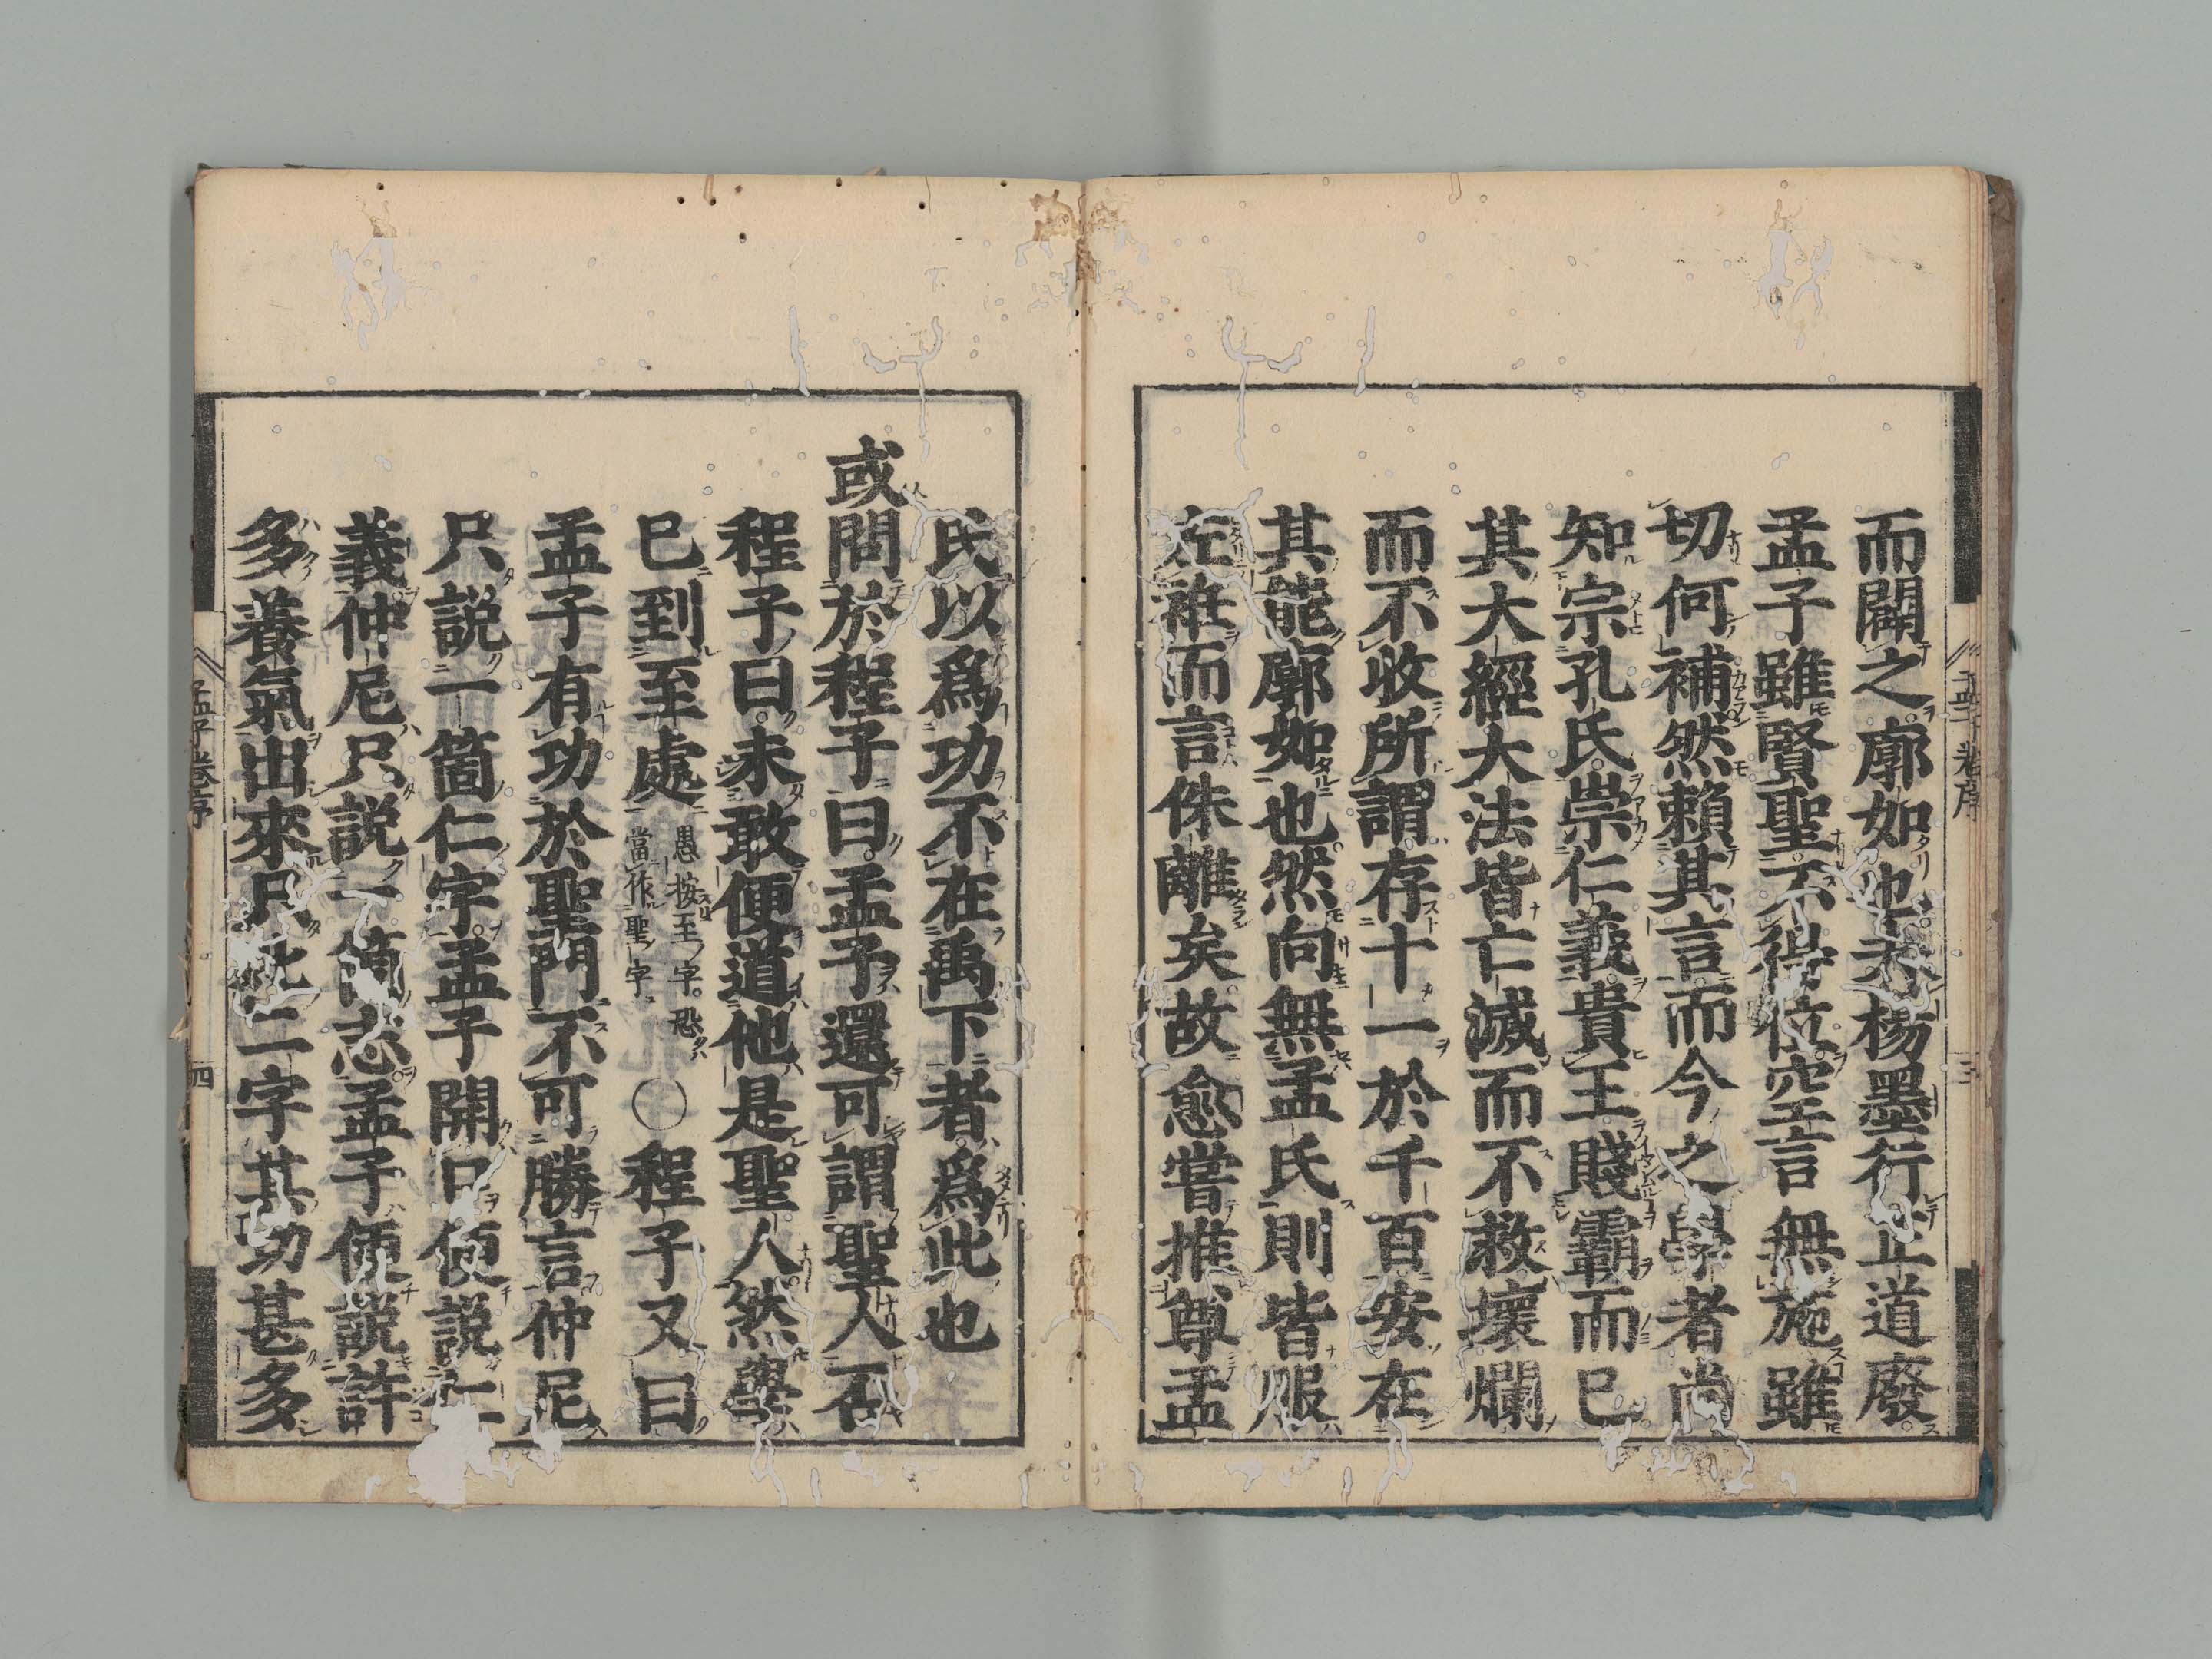 而闢之廓如也夫楊墨行正道廢
孟子雖賢聖不得位空言無施雖
切何補然賴其言而今之學者尚
知宗孔氏崇仁義貴王賤霸而已
其大經大法皆亡滅而不救壞爛
而不收所謂存十一於千百安在
其能廓如也然向無孟氏則皆服
左衽而言侏離矣故愈嘗推尊孟
氏以爲功不在禹下者爲此也
或問於程子曰孟子還可謂聖人否
程子曰未敢便道他是聖人然學
已到至處
愚按至字恐
當作聖字
○程子又曰
孟子有功於聖門不可勝言仲尼
只説一箇仁字孟子開口便説仁
義仲尼只説一箇志孟子便説許
多養氣出來只此二字其功甚多
孟子卷序
四